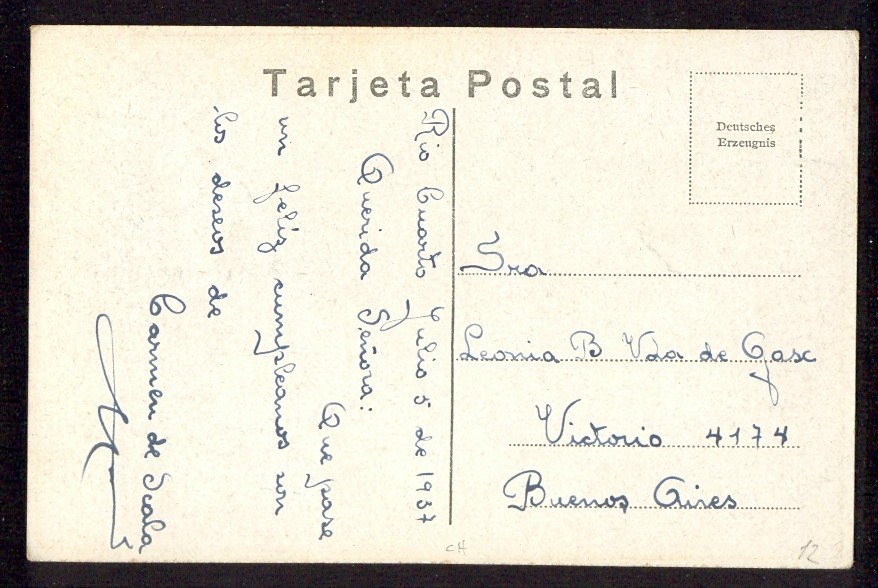 Tarjeta Postal
Deutsches
Erzeugnis
Rio Cuarto Julio 5 de 1937
Querida Señora:
Que pase
un feliz cumpleanos son
los deseos de
Carmen de Scala
Sra
Leonia B Vda de Gasc
Victorio 4174
Buenos Aires
CH
12